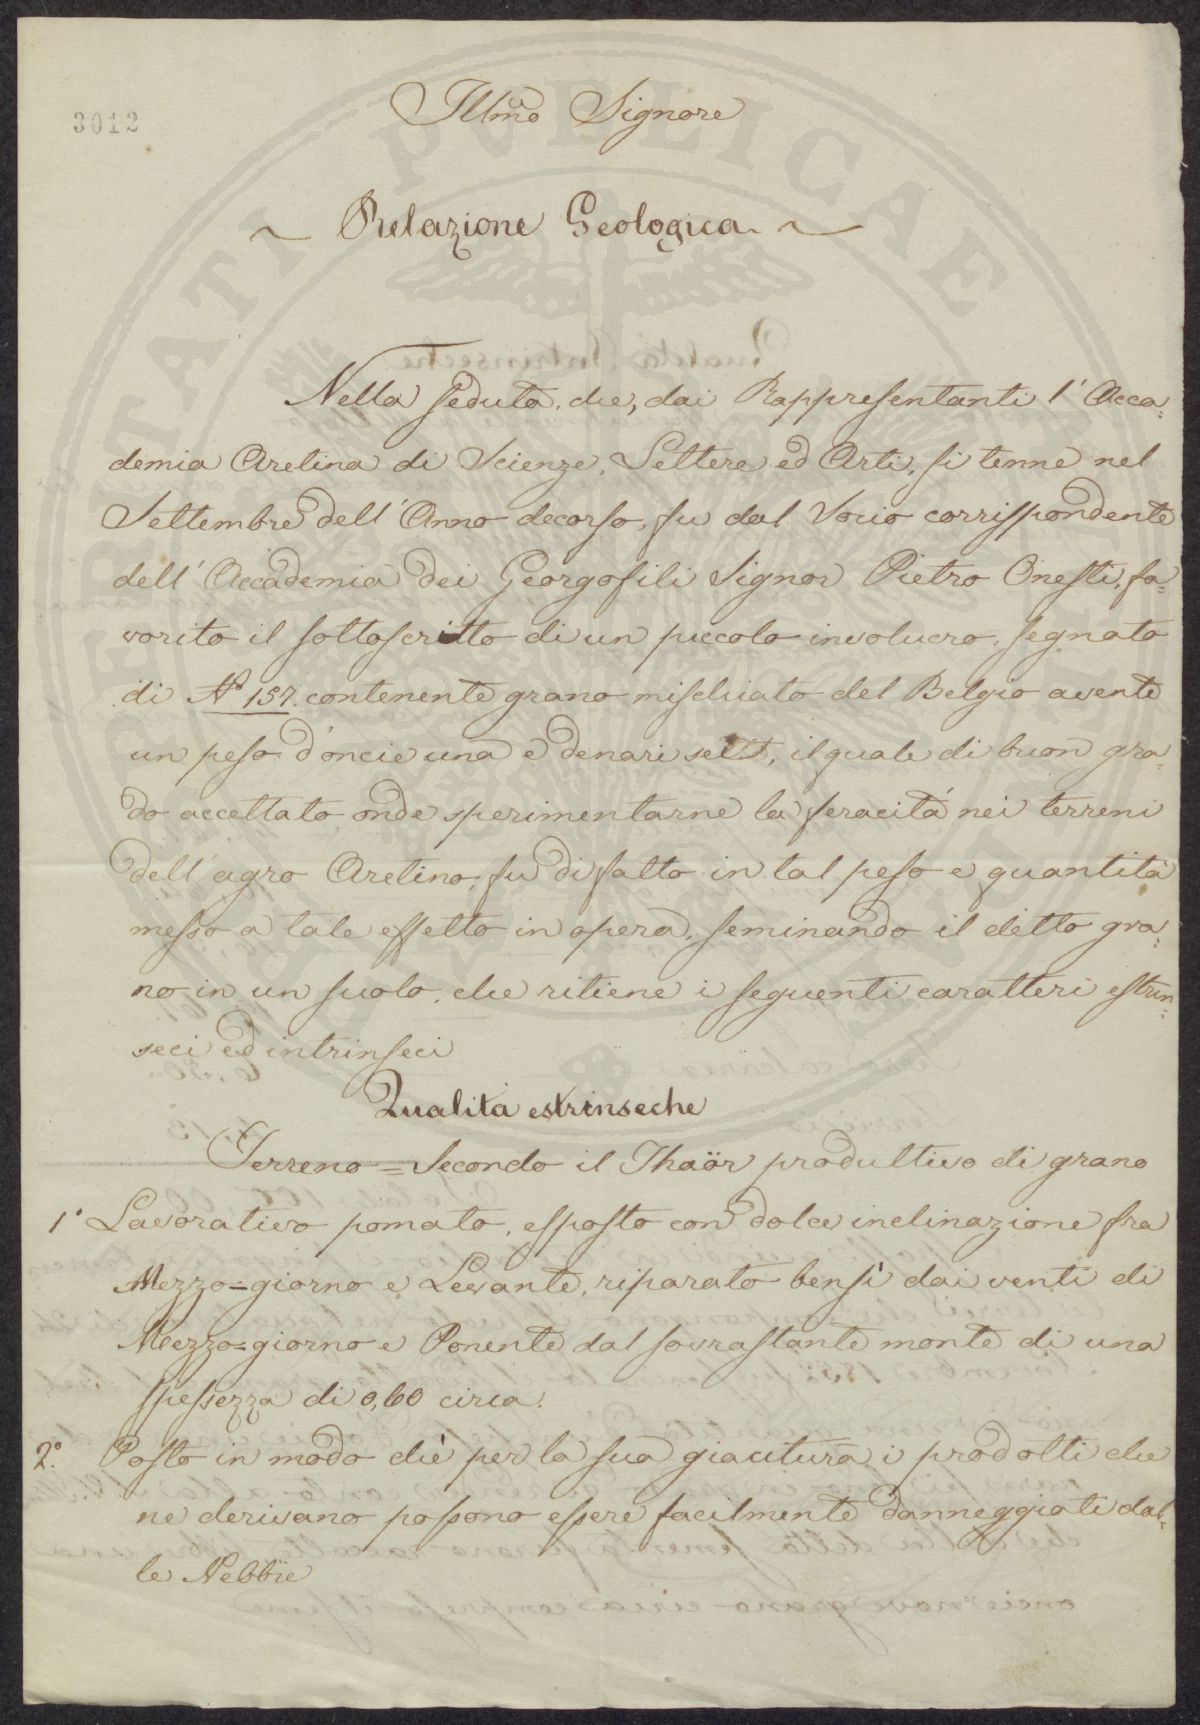 3012
Illmo Signore
Relazione Geologica
Nella seduta, che, dai Rappresentanti l'Acca=
demia Aretina di Scienze, Lettere ed Arti, si tenne nel
Settembre dell'Anno decorso, fu dal Socio corrispondente
dell'Accademia dei Georgofili Signor Pietro Onesti, fa=
vorito il sottoscritto di un piccolo involucro, segnato
di N° 157. contenente grano mischiato del Belgio avente
un peso d'oncie una e denari sett, il quale di buon gra=
do accettato, onde sperimentarne la feracità nei terreni
dell'agro Aretino, fu difatto in tal peso e quantità
messo a tale effetto in opera, seminando il detto gra=
no in un suolo, che ritiene i seguenti caratteri estrin=
seci ed intrinseci
Qualità estrinseche
Terreno = Secondo il Thaör produttivo di grano
1° Lavorativo pomato, esposto con dolce inclinazione fra
Mezzo=giorno e Levante, riparato bensì dai venti di
Mezzo=giorno e Ponente dal sovrastante monte di una
spessezza di 0,60 circa.
2.° Posto in modo chè per la sua giacitura i prodotti che
ne derivano possono essere facilmente danneggiati dal=
le Nebbie